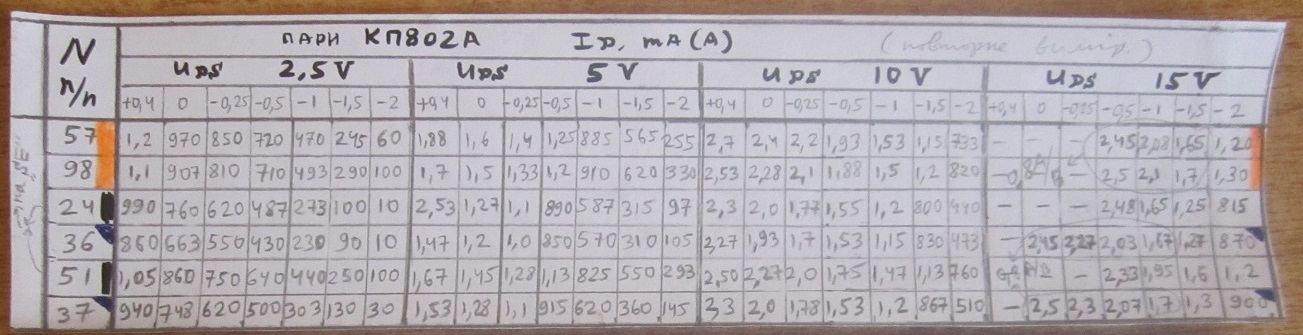 N п/п ПАРИ КП802А ID, mA (A) (повторне вимір.)
UDS 2,5 V UDS 5 V UDS 10 V UDS 15 V
+0,4 0 -0,25 -0,5 -1 -1,5 -2 +0,4 0 -0,25 -0,5 -1 -1,5 -2 +0,4 0 -0,25 -0,5 -1 -1,5 -2 +0,4 0 -0,25 -0,5 -1 -1,5 -2
57 1,2 970 850 720 470 245 60 1,88 1,6 1,4 1,25 885 565 255 2,7 2,4 2,2 1,93 1,53 1,15 733 - - - 2,45 2,08 1,65 1,20
98 1,1 907 810 710 493 290 100 1,7 1,5 1,33 1,2 910 620 330 2,53 2,28 2,1 1,88 1,5 1,2 820 - 0,8A/В - 2,5 2,1 1,7 1,30
24 990 760 620 487 273 100 10 2,53 1,27 1,1 890 587 315 97 2,3 2,0 1,77 1,55 1,2 800 440 - - - 2,48 1,65 1,25 815
36 860 663 550 430 230 90 10 1,47 1,2 1,0 850 570 310 105 2,27 1,93 1,7 1,53 1,15 830 473 - 2,45 2,27 2,03 1,67 1,27 870
51 1,05 860 750 640 440 250 100 1,67 1,45 1,28 1,13 825 550 293 2,50 2,27 2,0 1,75 1,47 1,13 760 - 2,33 1,95 1,6 1,2
37 940 748 620 500 303 130 30 1,53 1,28 1,1 915 620 360 145 2,3 2,0 1,78 1,53 1,2 867 510 - 2,5 2,3 2,07 1,7 1,3 900